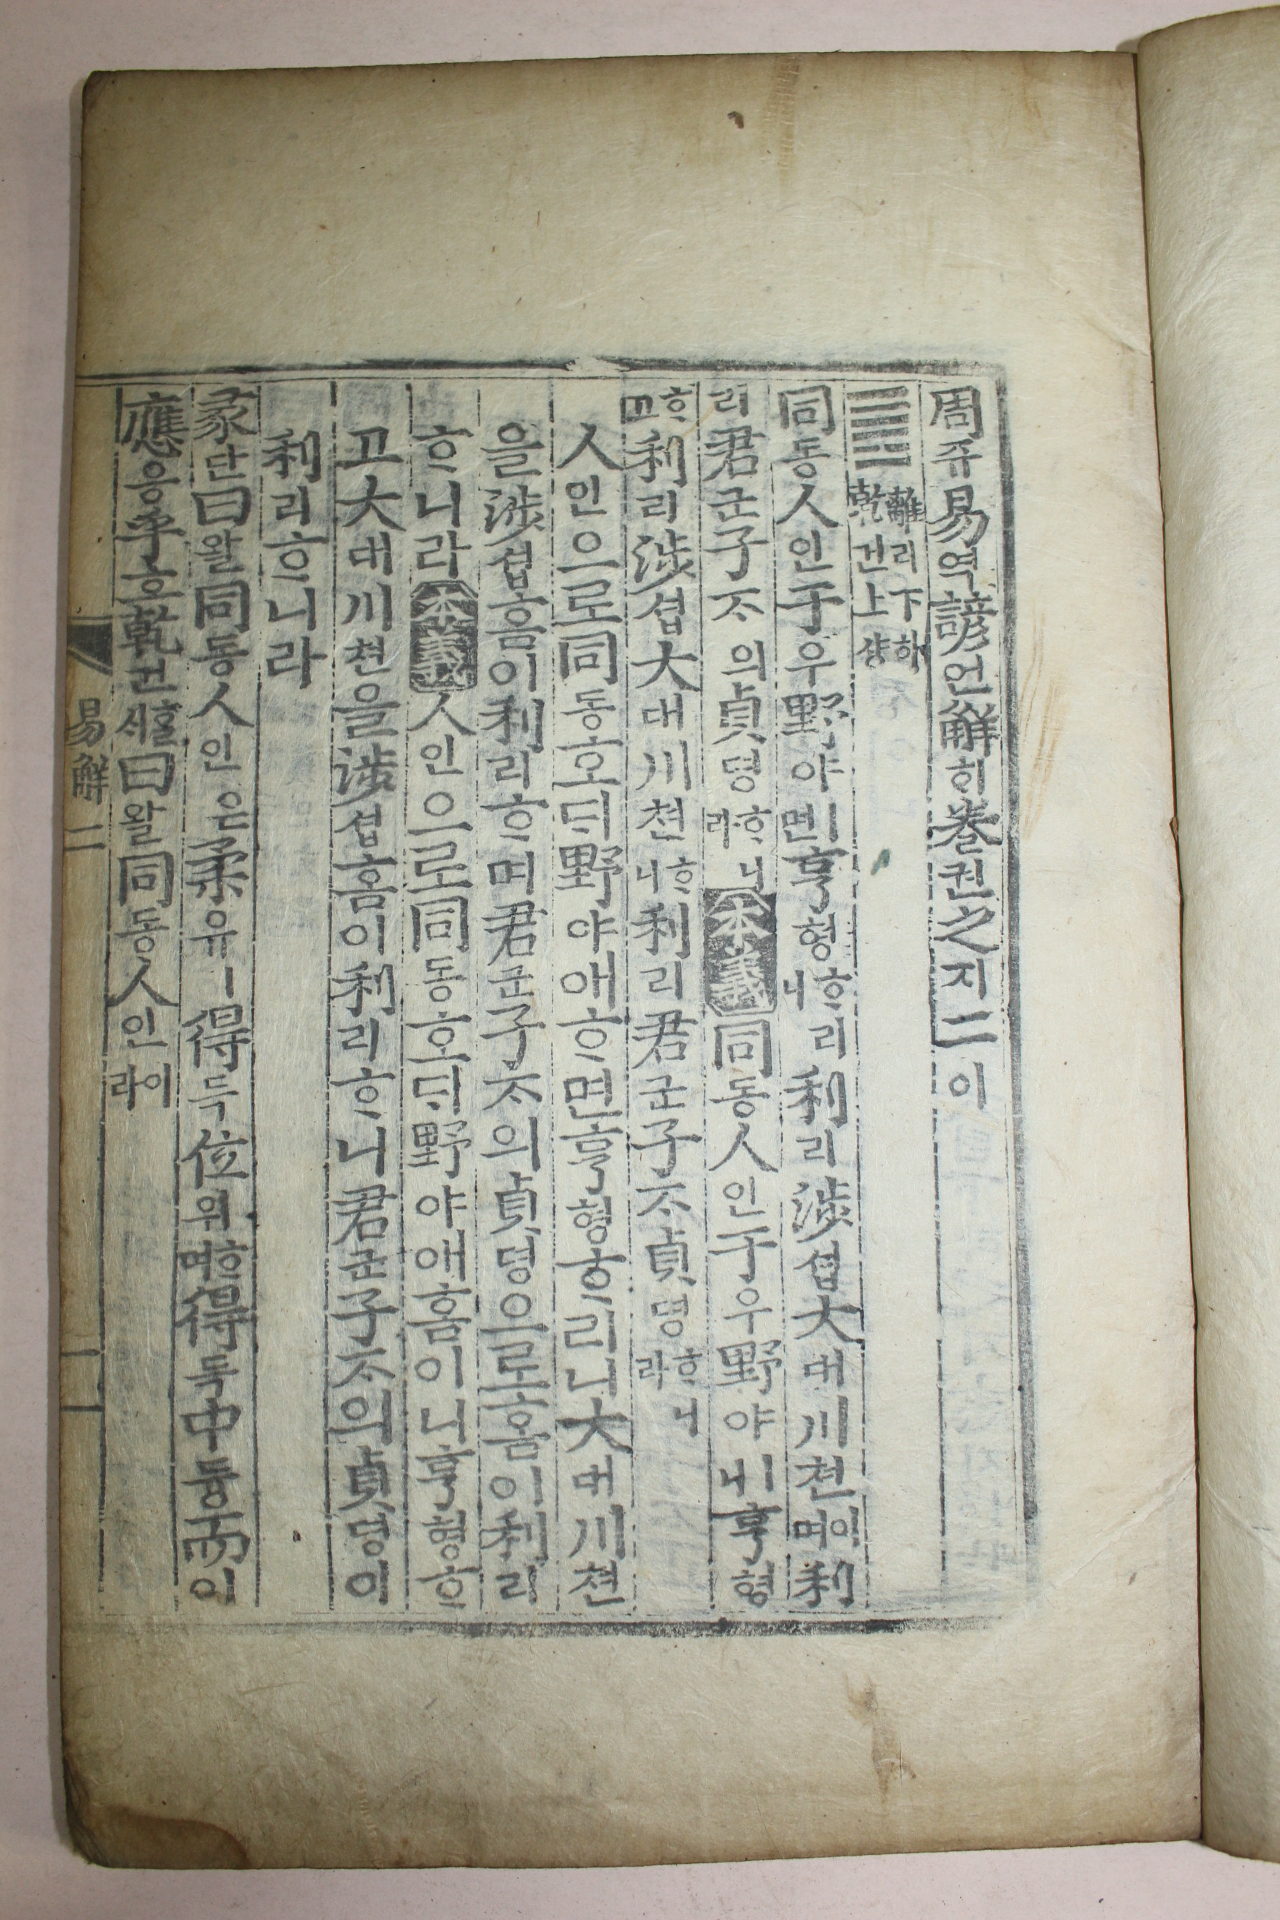 周쥬易역諺언解ᄒᆡ卷권之지二이
離리下하乾건上샹
同동人인于우野야ㅣ면亨형ᄒᆞ리니利리涉셥大대川쳔이며利
리君군子ᄌᆞ의貞뎡ᄒᆞ니라本義同동人인于우野야ㅣ니亨형
ᄒᆞ고利리涉셥大대川쳔ᄒᆞ니利리君군子ᄌᆞ貞뎡ᄒᆞ니라
人인으로同동호ᄃᆡ野야애ᄒᆞ면亨형ᄒᆞ리니大대川쳔
을涉셥홈이利리ᄒᆞ며君군子ᄌᆞ의貞뎡으로홈이利리
ᄒᆞ니라本義人인으로同동호ᄃᆡ野야애홈이니亨형ᄒᆞ
고大대川쳔을涉셥홈이利리ᄒᆞ니君군子ᄌᆞ의貞뎡이
利리ᄒᆞ니라
彖단曰왈同동人인은柔유ㅣ得득位위ᄒᆞ며得득中듕而이
應응乎호乾건ᄒᆞᆯᄉᆡ曰왈同동人인이라
易解二
一